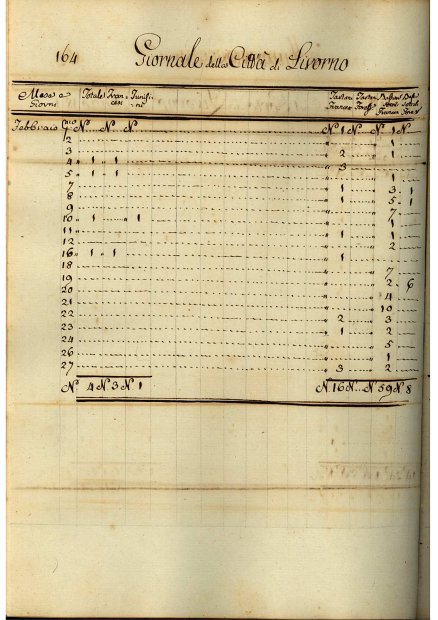 164 Giornale della Città di Livorno
Mese e Totale Fran- Tunisi- Bast.
Giorni cesi ni Francesi
Febbraio 1 N... N N N 1 N... N 1 N
2 1
3 2 1
4 1 1 3
5 1 1
7 1 3 1
8 1 5 1
9 7
10 1 1 1
11 1 1
12 2
16 1 1 1
18 7
19 2 6
20 4
21 10
22 2 3
23 1 2
24 5
26 1
27 3 2
N.º 4 N 3 N 1 N 16 N... N 59 N 8